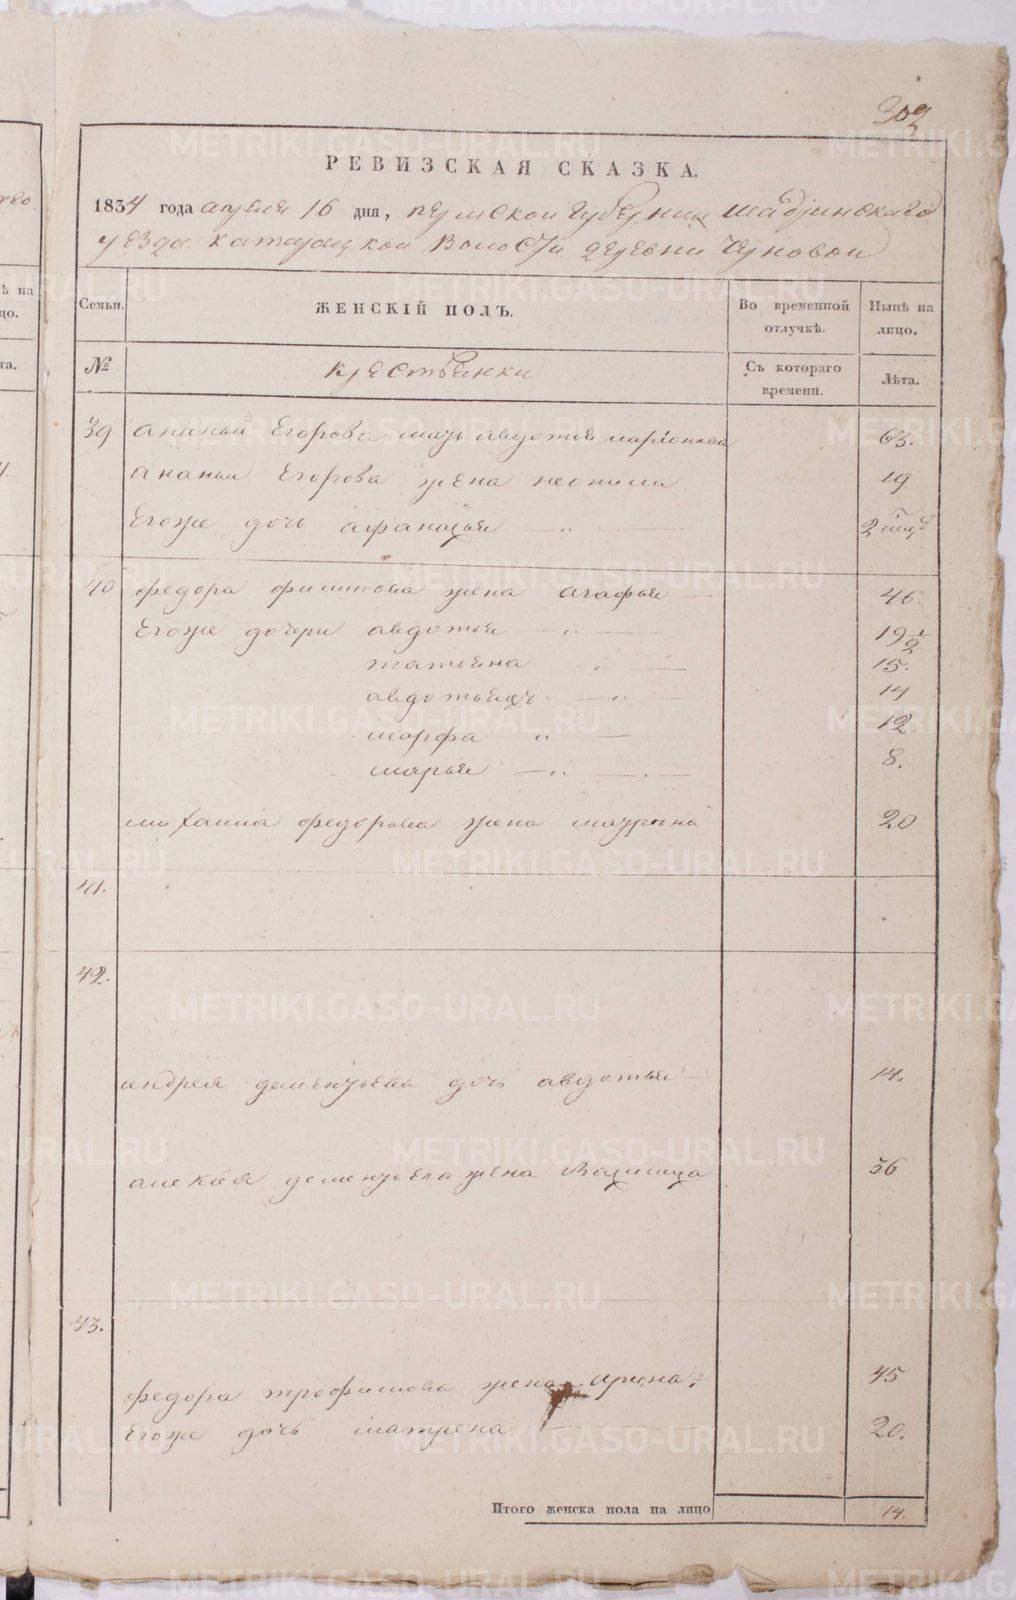 302
РЕВИЗСКАЯ СКАЗКА.
1834 года апреля 16 дня, пермской губернии шадринскаго
уезда катарацкой волости деревни чуновой
Семьи.
ЖЕНСКІЙ ПОЛЪ.
Во временной отлучкѣ.
Нынѣ на лицо.
№
крестьянки
Съ котораго времени.
Лѣта.
39 ананьи Егорова мать авдотья 63.
ананьи Егорова жена неонила 19
Егоже дочь афанасья — „ — 2
40 федора филипова жена агафья — 46.
Егоже дочери авдотья — „ — 19 1/2
татьяна — „ — 15.
авдотья — „ — 14
марфа — „ — 12.
марья — „ — 8.
михаила федорова жена 20
41.
42.
андрея дементьева дочь авдотья — 14.
дементьева жена 36
43.
федора трофимова жена арина 45
Егоже дочь матрена — 20.
Итого женска пола на лицо 14.
METRIKI.GASO-URAL.RU